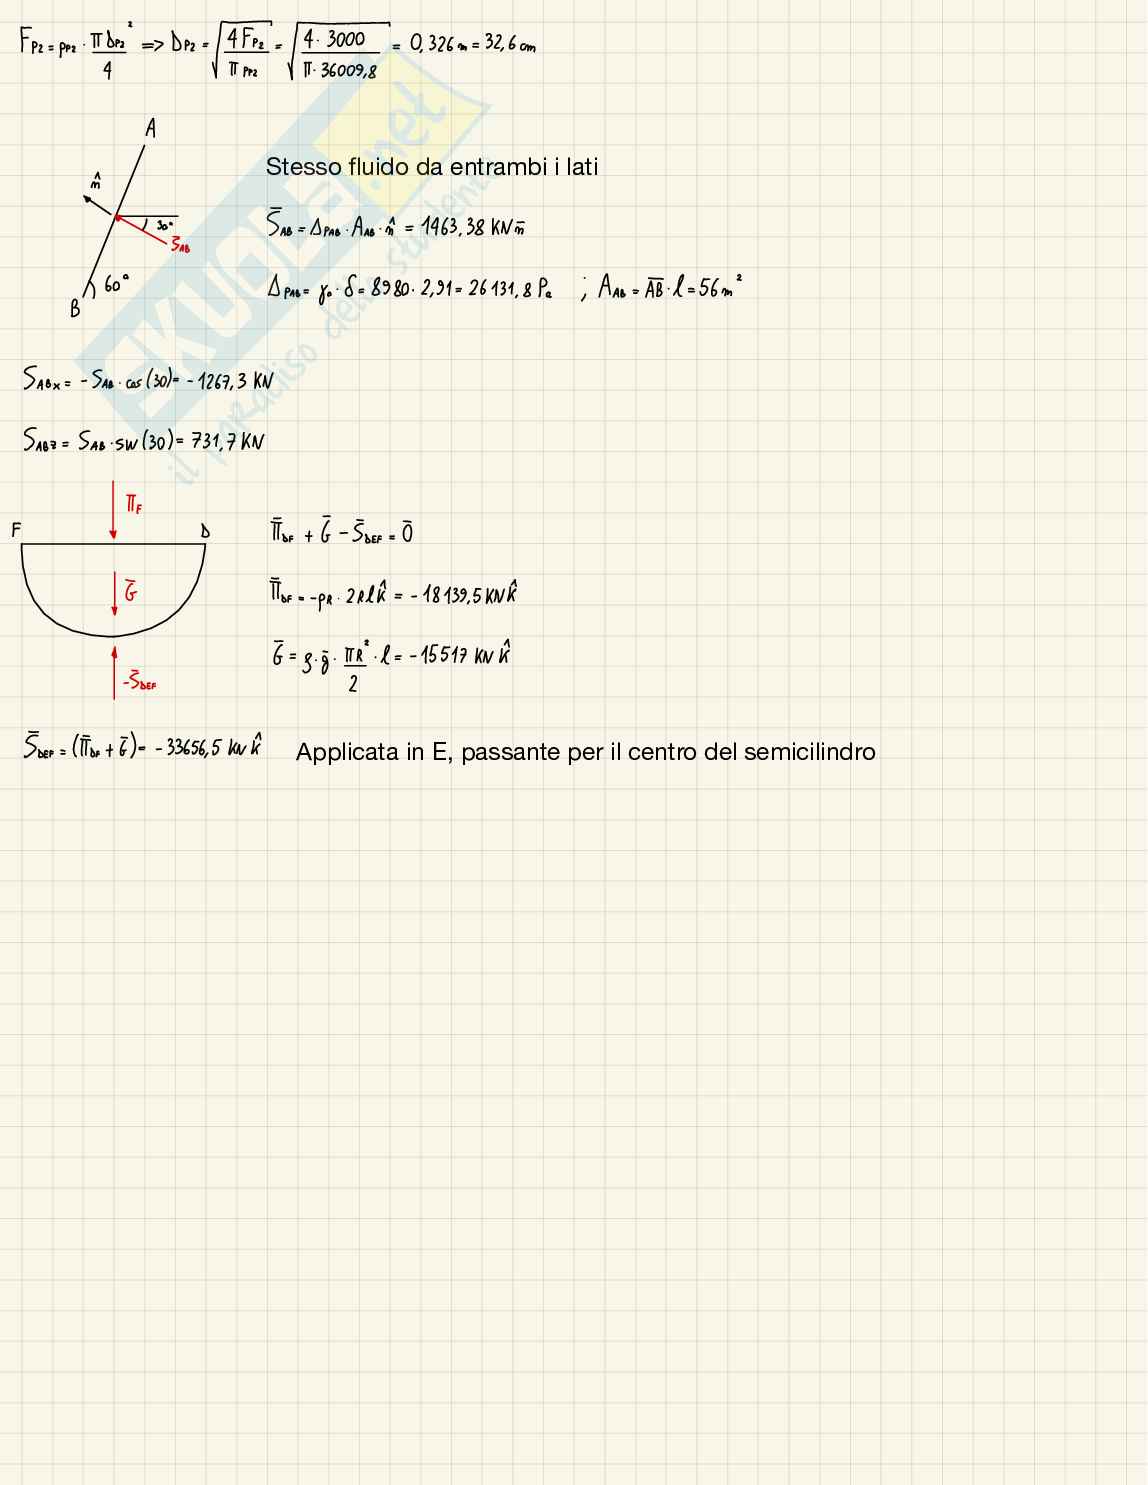 F_P2 = p_P2 · πD_P2²/4 => D_P2 = √(4F_P2/πp_P2) = √(4·3000/π·36009,8) = 0,326 m = 32,6 cm
A
n̂
Stesso fluido da entrambi i lati
30°
S̄_AB
S̄_AB = Δp_AB · A_AB · n̂ = 1463,38 KN n̄
60°
B
Δp_AB = γ₀ · δ = 8980 · 2,91 = 26131,8 Pa ; A_AB = A̅B̅ · l = 56 m²
S_ABx = - S_AB · cos(30) = - 1267,3 KN
S_ABz = S_AB · sin(30) = 731,7 KN
SKUOLA.net
il paradiso dello studente
Π_F
F D
Π̄_DF + Ḡ - S̄_DEF = 0̄
Ḡ
Π̄_DF = -p_R · 2Rl k̂ = - 18139,5 KN k̂
Ḡ = ρ · ḡ · πR²/2 · l = - 15517 KN k̂
-S̄_DEF
S̄_DEF = (Π̄_DF + Ḡ) = - 33656,5 KN k̂ Applicata in E, passante per il centro del semicilindro